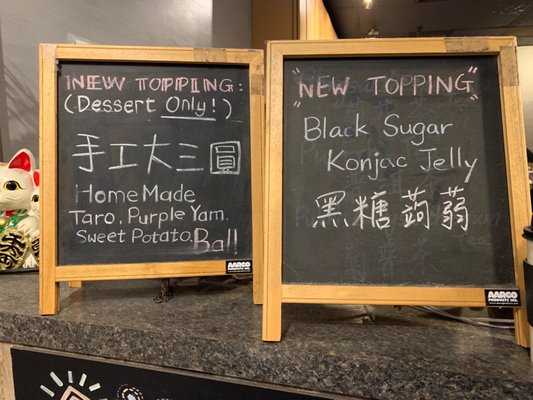 NEW TOPPING:
(Dessert Only!)
手工大三圓
Home Made
Taro, Purple Yam,
Sweet Potato Ball
AARCO
PRODUCTS INC.
"NEW TOPPING"
Black Sugar
Konjac Jelly
黑糖蒟蒻
AARCO
PRODUCTS INC.